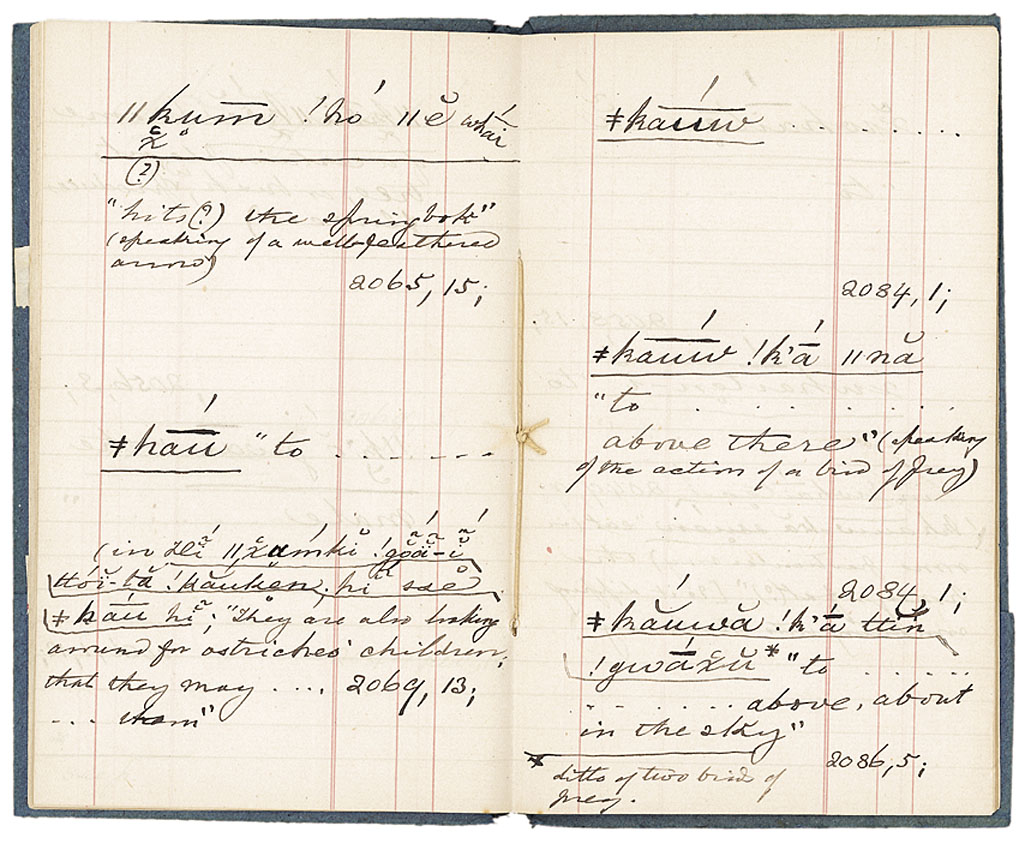 ǁkum̅ !hó ǁĕ whāí
x̥̆
(?)
"hits(?) the springbok"
(speaking of a well-feathered
arrow)
2065, 15;
ǂkaū́ "to . . . . . .
(in ǁx̯amkĭ !gõä-ĭ
ttóï-tă !kăukĕn, hĭ
ǂkaū́ hĭ; "They are also looking
around for ostriches' children,
that they may .... 2069, 13;
... them"
ǂkaū́w . . . . . . .
2084, 1;
ǂkaū́w !k'ā́ ǁnă
"to . . . . . . .
above there" (speaking
of the action of a bird of prey)
2084, 1;
ǂkăúwă !k'ā́ ttĭn̆
!gwā́x̯ŭ* "to . . . . . .
. . . . . . above, about
in the sky"
2086, 5;
* ditto of two birds of
prey.